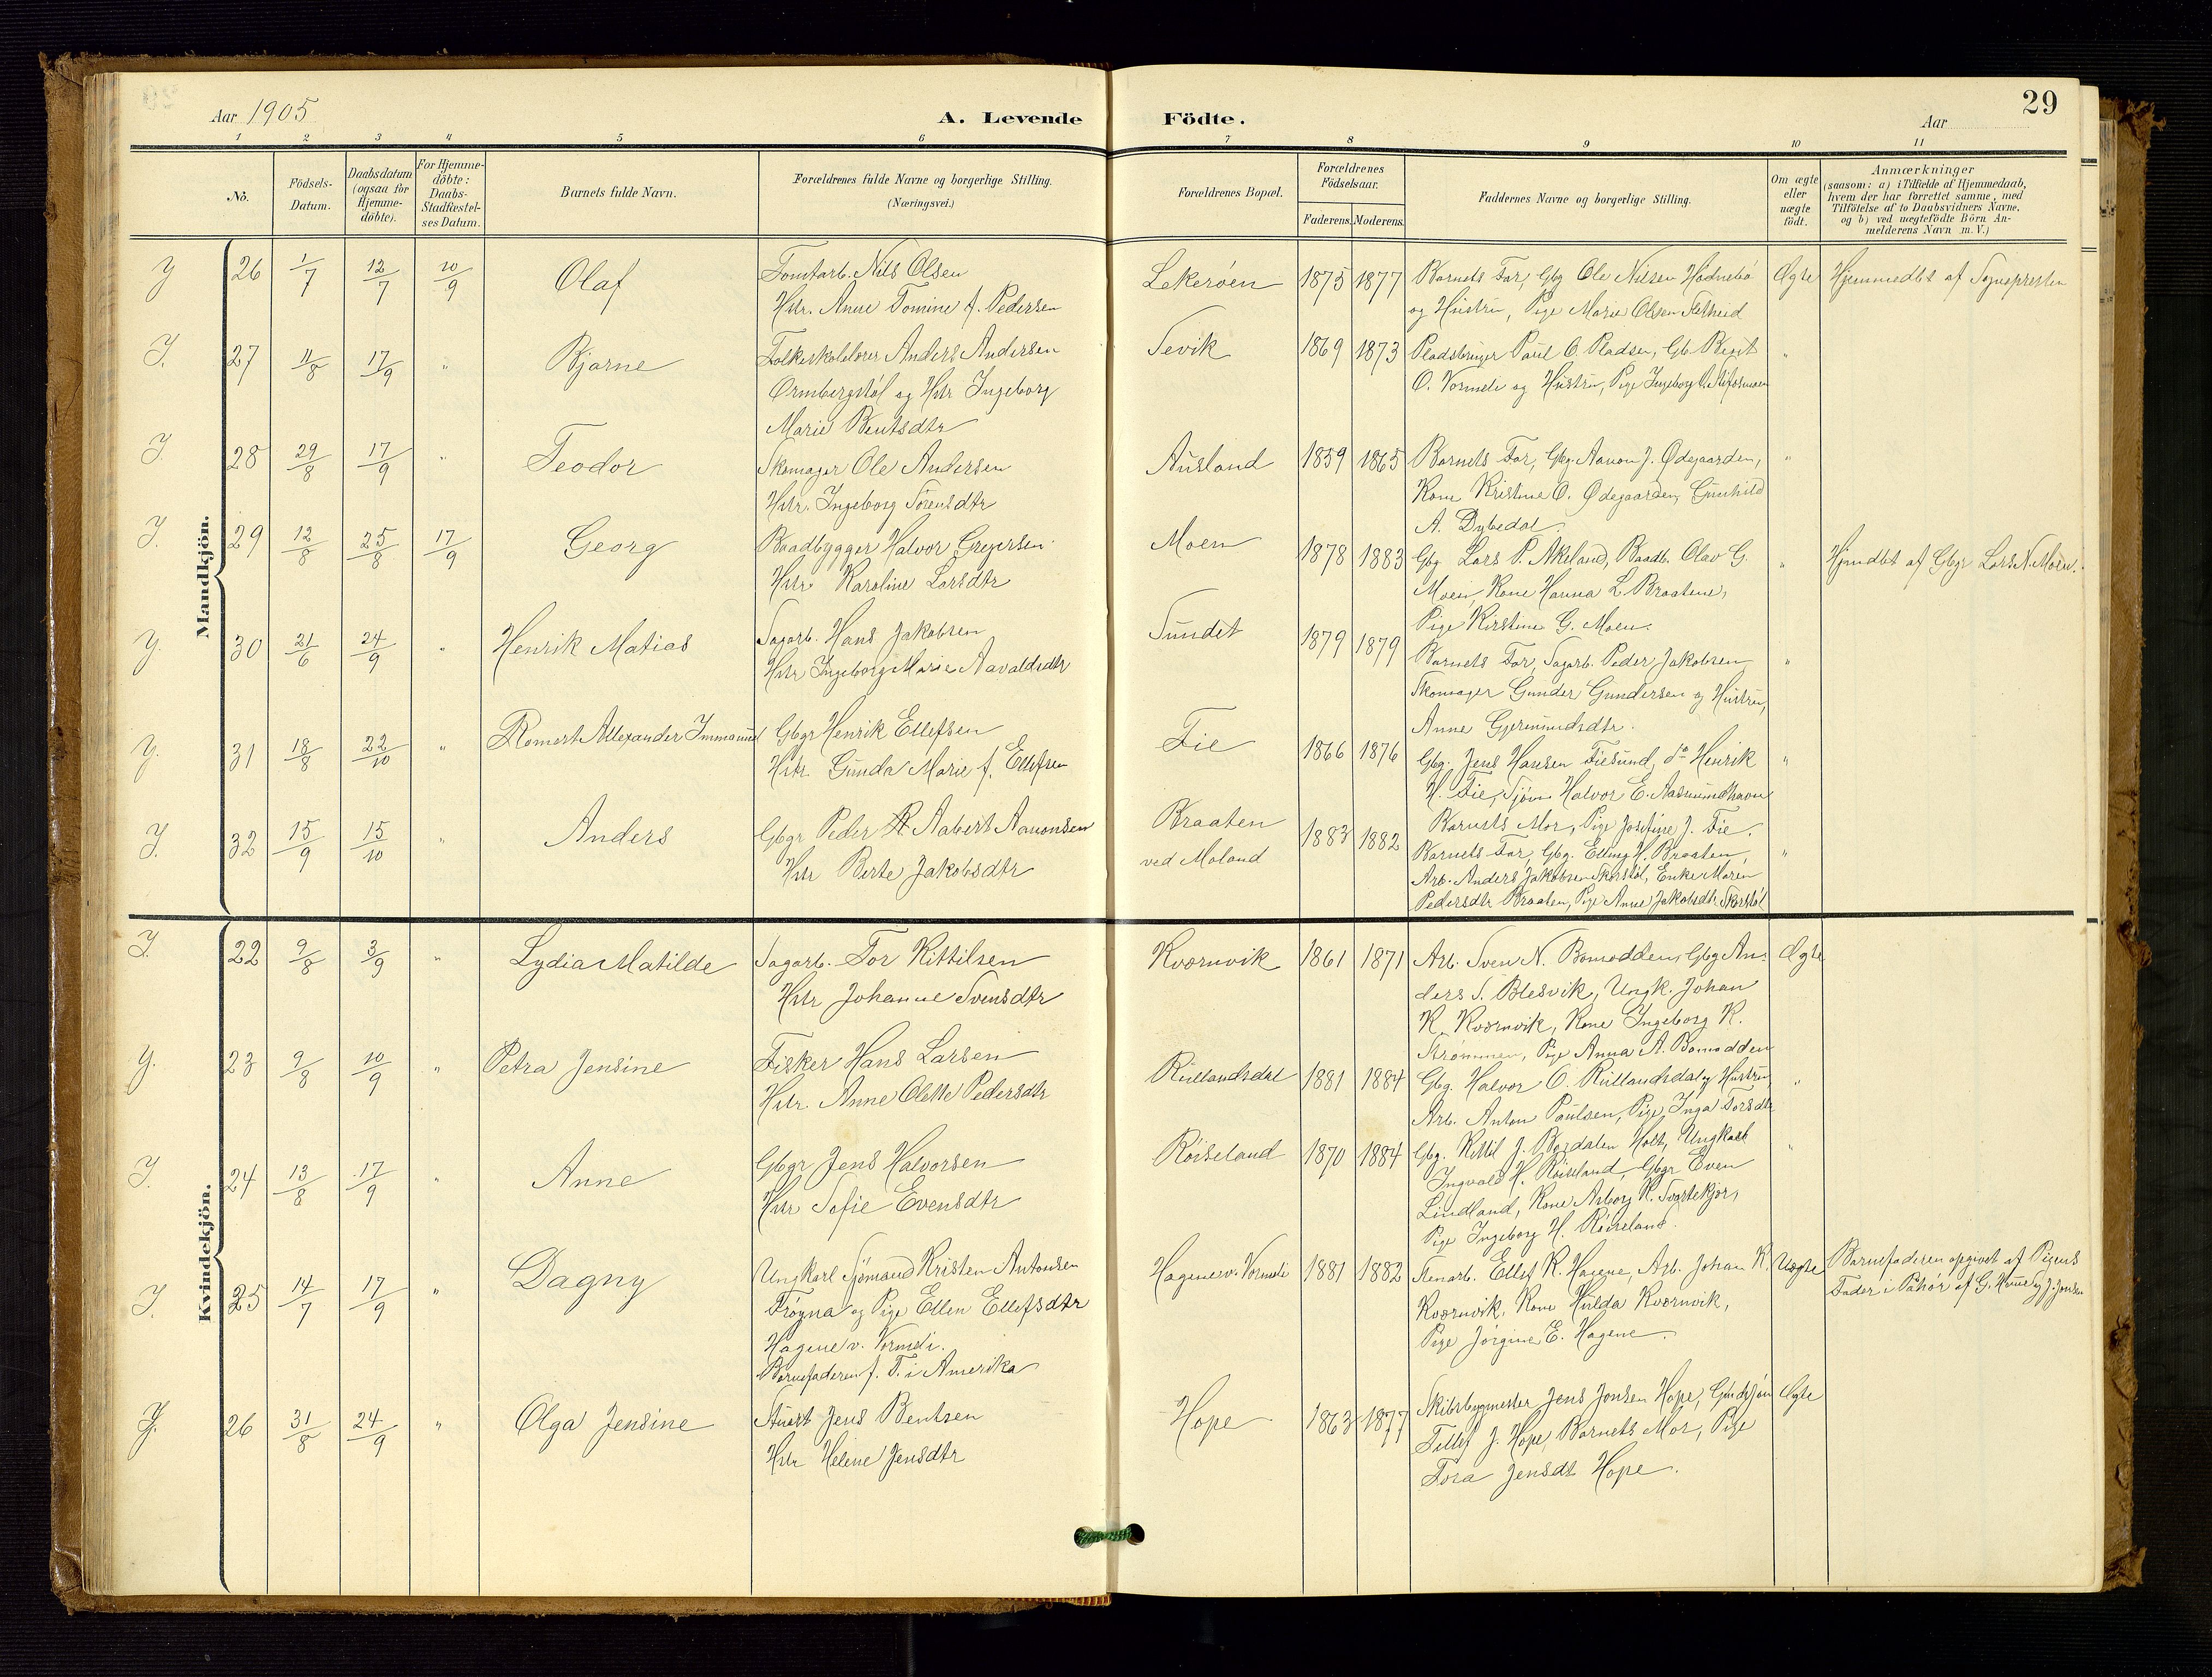 29
Aar 1905
A. Levende Födte.
Aar
1 2 3 4 5 6 7 8 9 10 11
No.
Födsels-
Datum.
Daabsdatum
(ogsaa for
Hjemme-
döbte).
For Hjemme-
döbte:
Daabs-
Stadfæstel-
ses Datum.
Barnets fulde Navn.
Forældrenes fulde Navne og borgerlige Stilling.
(Næringsvei.)
Forældrenes Bopæl.
Forældrenes
Födselsaar.
Faderens. Moderens.
Faddernes Navne og borgerlige Stilling.
Om ægte
eller
uægte
födt.
Anmærkninger
(saasom: a) i Tilfælde af Hjemmedaab,
hvem der har forrettet samme, med
Tilföielse af to Daabsvidners Navne.
og b) ved uægtefödte Börn An-
melderens Navn m. V.)
Mandkjön.
J 26 1/7 12/7 10/9 Olaf
Tomtarb. Nils Olsen
Hstr. Anne Tomine f. Pedersen
Lekeröen 1875 1877
Barnets Far, Gbg Ole Nilsen Hödnebö
og Hustru, Pige Marie Olsen
Ægte
Hjemmedbt af Sognepresten
J. 27 11/8 17/9 " Bjarne
Folkeskolelærer Anders Andersen
Ormbergstöl og Hstr Ingeborg
Marie Bentsdtr
Sevik 1869 1873
Pladsbruger Paul O. Pladsen, Gb. Berit
O. Vormeli og Hustru, Pige Ingeborg
"
J. 28 29/8 17/9 " Teodor
Skomager Ole Andersen
Hstr. Ingeborg Sörensdtr
Ausland 1859 1865
Barnets Far, Gbg. Aanon J. Ødegaarden,
Kone Kristine O. Ødegaarden, Gunhild
A. Dybedal.
"
J. 29 12/8 25/8 17/9 Georg
Baadbygger Halvor Gregersen
Hstr. Karoline Larsdtr
Moen 1878 1883
Gbg. Lars P. Akeland, Baadb. Olav G.
Moen, Kone Hanna L. Braatene,
Pige Kirstine G. Moen.
"
Hjmdbt af Gbgr Lars N. Moen.
J. 30 21/6 24/9 " Henrik Matias
Sagarb. Hans Jakobsen
Hstr Ingeborg Marie Aavaldsdtr
Sundet 1879 1879
Barnets Far, Sagarb. Peder Jakobsen,
Skomager Gunder Gundersen og Hustru,
Anne Gjermundsdtr.
"
J. 31 18/8 22/10 " Romert Allexander Immanuel
Gbgr Henrik Ellefsen
Hstr. Gunda Marie f. Ellefsen
Fie 1866 1876
Gbg. Jens Hansen Fiesund, do Henrik
H. Fie, Sjöm. Halvor E. Aasmundhavn
Barnets Mor, Pige Josefine J. Fie.
"
J. 32 15/9 15/10 " Anders
Gbgr Peder Aabert Aanonsen
Hstr Berte Jakobsdtr
Braaten
ved Moland
1883 1882
Barnets Far, Gbg. Elling H. Braaten,
Arb. Anders Jakobsen Skorstöl, Enke Maren
Pedersdtr Braaten, Pige Anne Jakobsdtr. Skorstöl
"
Kvindekjön.
J. 22 9/8 3/9 " Lydia Matilde
Sagarb. Tor Kittilsen
Hstr Johanne Svensdtr
Kvornvik 1861 1871
Arb. Sven N. Bomodden, Gbg An-
ders S. Blesvik, Ungk. Johan
K. Kvornvik, Kone Ingeborg K.
Strömmen, Pige Anna A. Bomodden
Ægte
J. 23 9/8 10/9 " Petra Jensine
Fisker Hans Larsen
Hstr. Anne Olette Pedersdtr
Rullandsdal 1881 1884
Gbg. Halvor O. Rullandsdal og Hustru
Arb. Anton Paulsen, Pige Inga Torsdtr
"
J. 24 13/8 17/9 " Anne
Gbgr Jens Halvorsen
Hstr Sofie Evensdtr
Röiseland 1870 1884
Gbg. Kittil J. Bogdalen Holt, Ungkarl
Ingvald H. Röiseland, Gbgr Even
Lindland, Kone Asborg K. Svartekjær,
Pige Ingeborg H. Röiseland.
"
J. 25 14/7 17/9 " Dagny
Ungkarl Sjömand Kristen Antonsen
Tröyna og Pige Ellen Ellefsdtr
Hagene v. Vormeli.
Barnefaderen f. T. i Amerika
Hagene v. Vormeli 1881 1882
Stenarb. Ellef K. Hagene, Arb. Johan K.
Kvornvik, Kone Hulda Kvornvik,
Pige Jörgine E. Hagene.
Uægte
Barnefaderen opgivet af Pigens
Fader i Paahör af G. og J. Jensen
J. 26 31/8 24/9 " Olga Jensine
Stuert Jens Bentsen
Hstr Helene Jensdtr
Hope 1863 1877
Skibsbygmester Jens Jonsen Hope,
Tellef J. Hope, Barnets Mor, Pige
Tora Jensdt Hope.
Ægte